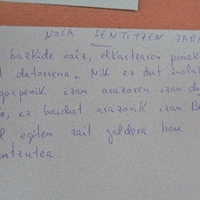 NOLA SENTITZEN ZARA
bazkide naiz, elkartearen proiek
datorrena. Nik ez dut inolak
izan arazoren izan du
, ez baidut arazorik izan Be
egiten zait galdera hau
ntzutea.